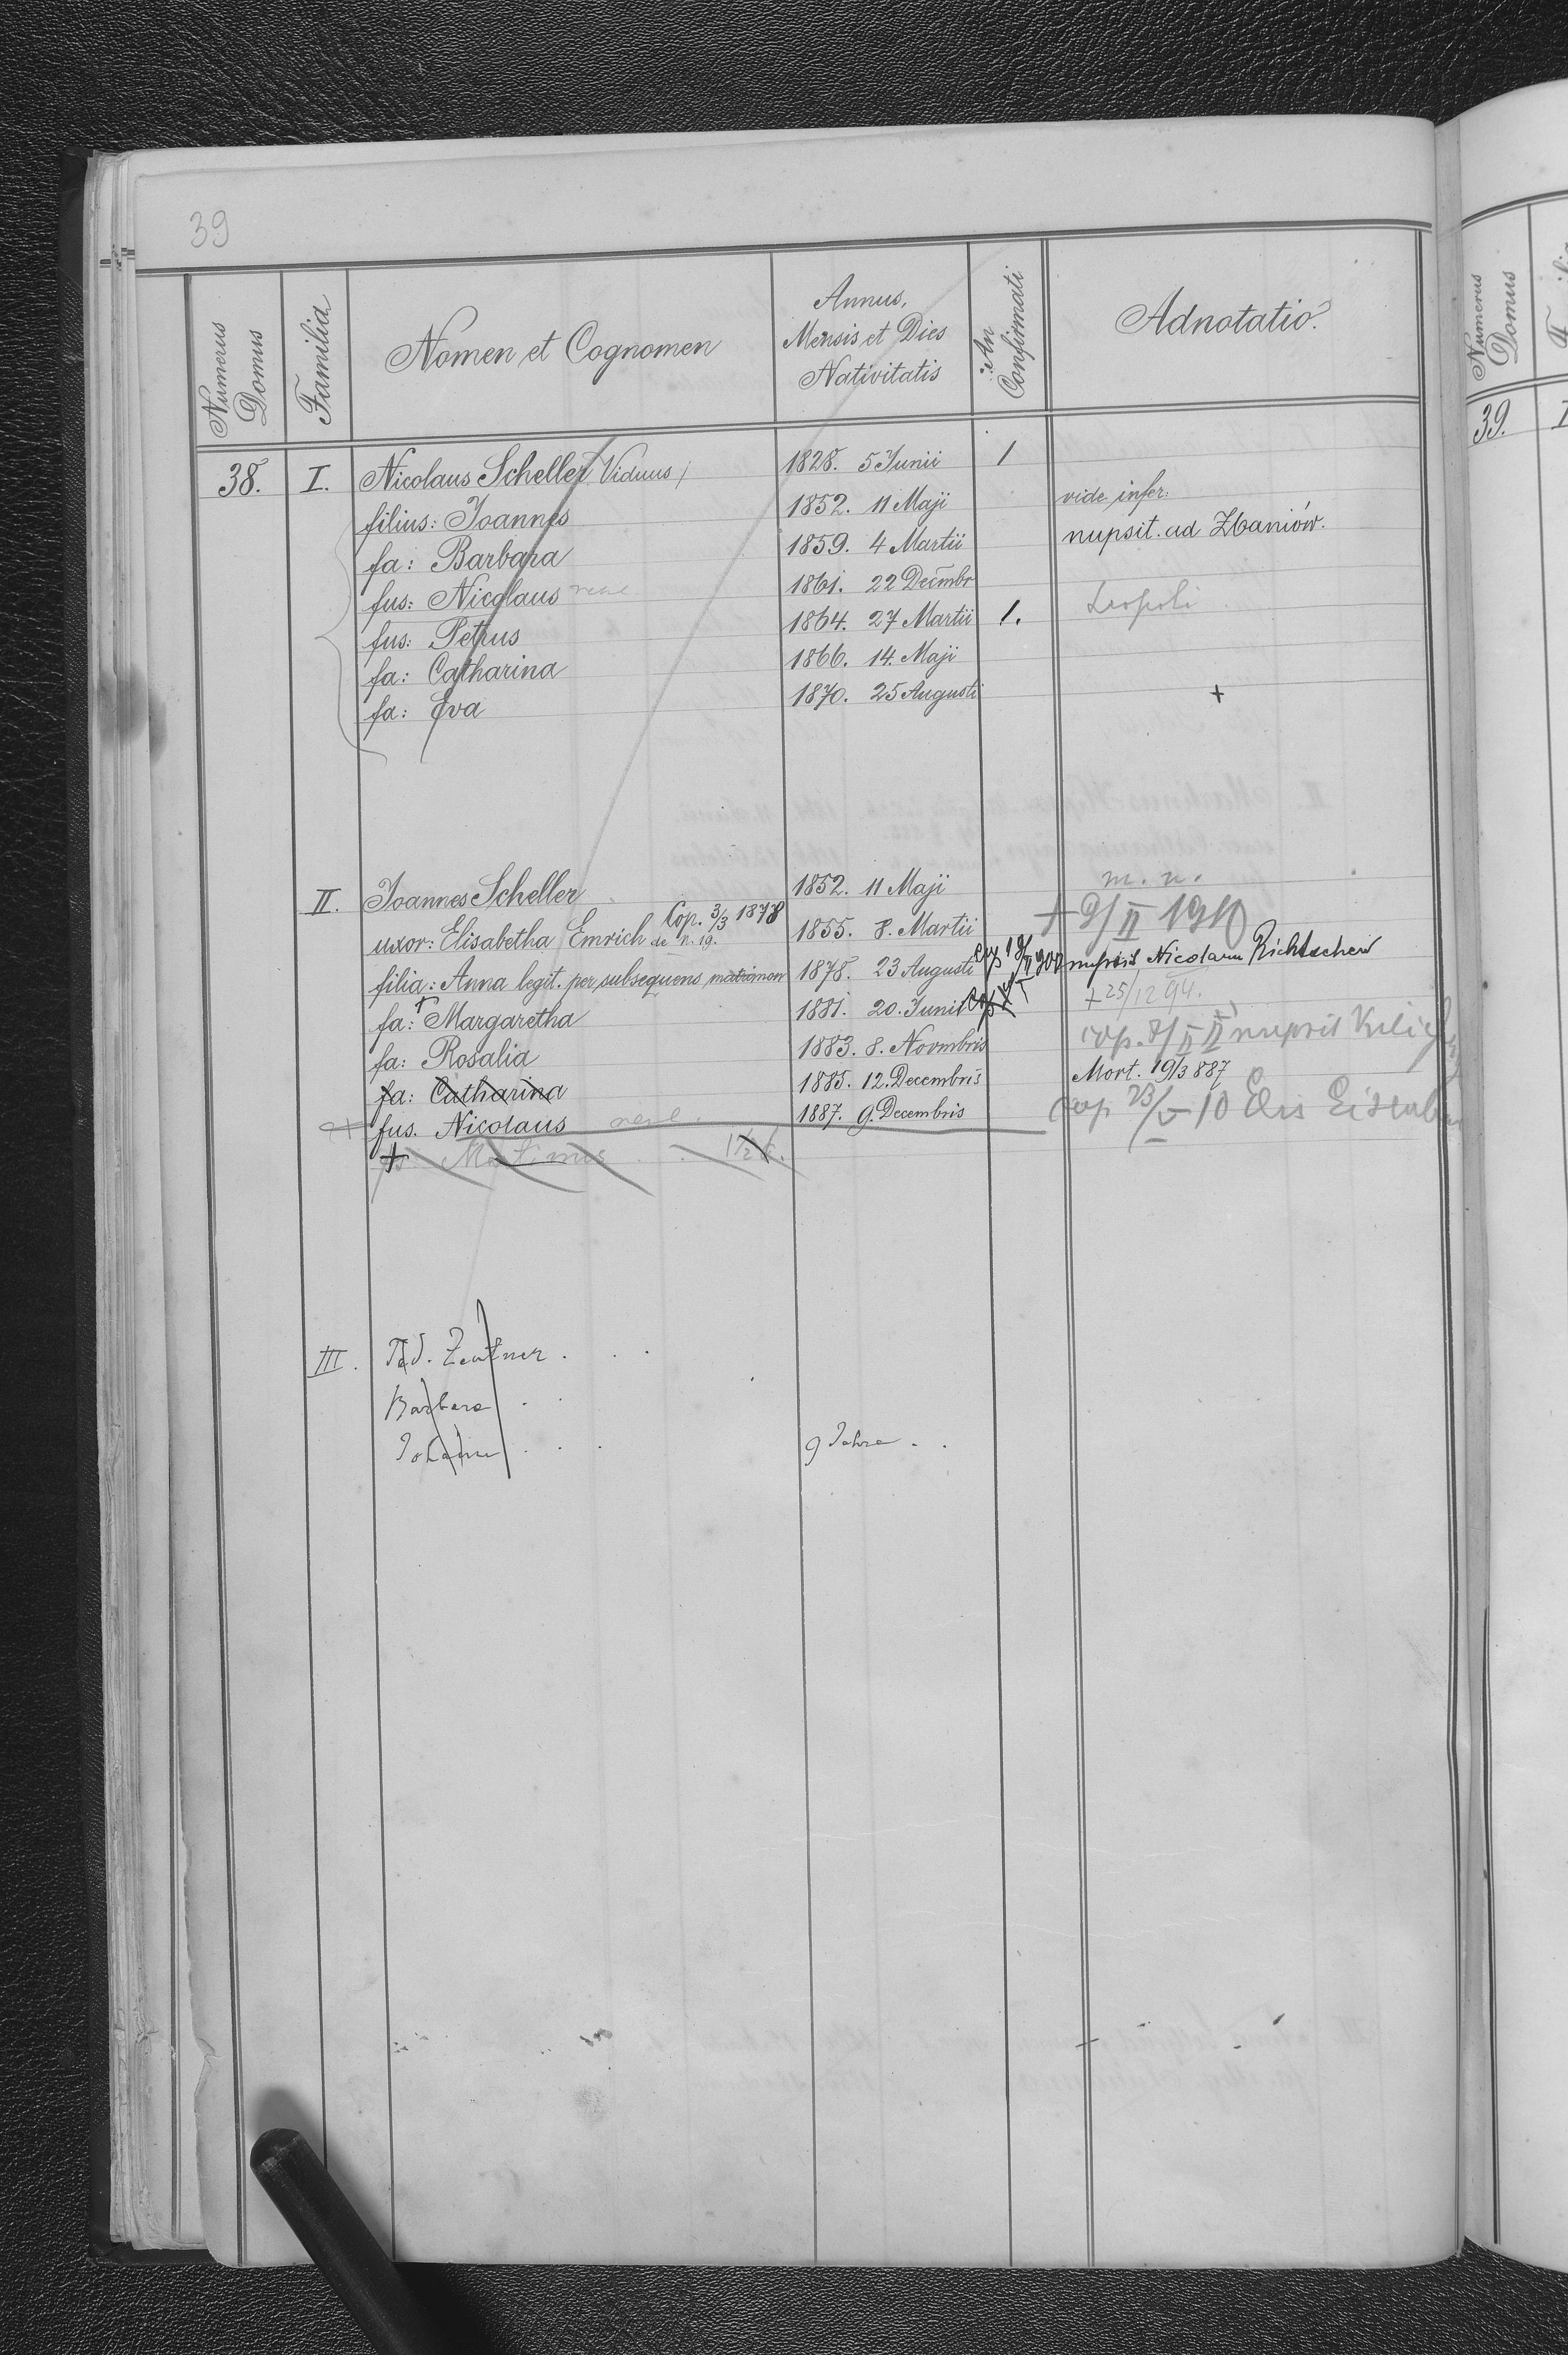 39
Numerus Domus
Familia
Nomen et Cognomen
Annus, Mensis et Dies Nativitatis
An Confirmati
Adnotatio.
Numerus Domus
38. I. Nicolaus Scheller Viduus 1828. 5 Junii 1
filius: Joannes 1852. 11 Maji vide infer:
fa: Barbara 1859. 4 Martii nupsit. ad Zbaniów.
fus: Nicolaus 1861. 22 Decmbr
fus: Petrus 1864. 27 Martii 1. Leopoli
fa: Catharina 1866. 14. Maji
fa: Eva 1870. 25 Augusti +
39. I
II. Joannes Scheller 1852. 11 Maji m. n.
Cop. 3/3 1878
uxor: Elisabetha Emrich de n. 19. 1855. 8. Martii + 9/II 1910
filia: Anna legit. per subsequens matrimon 1878. 23 Augusti nupsit Nicolaum
fa: Margaretha 1881. 20. Junii + 25/12 94.
fa: Rosalia 1883. 8. Novmbris nupsit
fa: Catharina 1885. 12. Decembris Mort. 19/3 887
fus. Nicolaus 1887. 9. Decembris cop 23/V 10
+ Martinus 1 1/2
III. Zentner
Barbara
Johann 9 Jahre